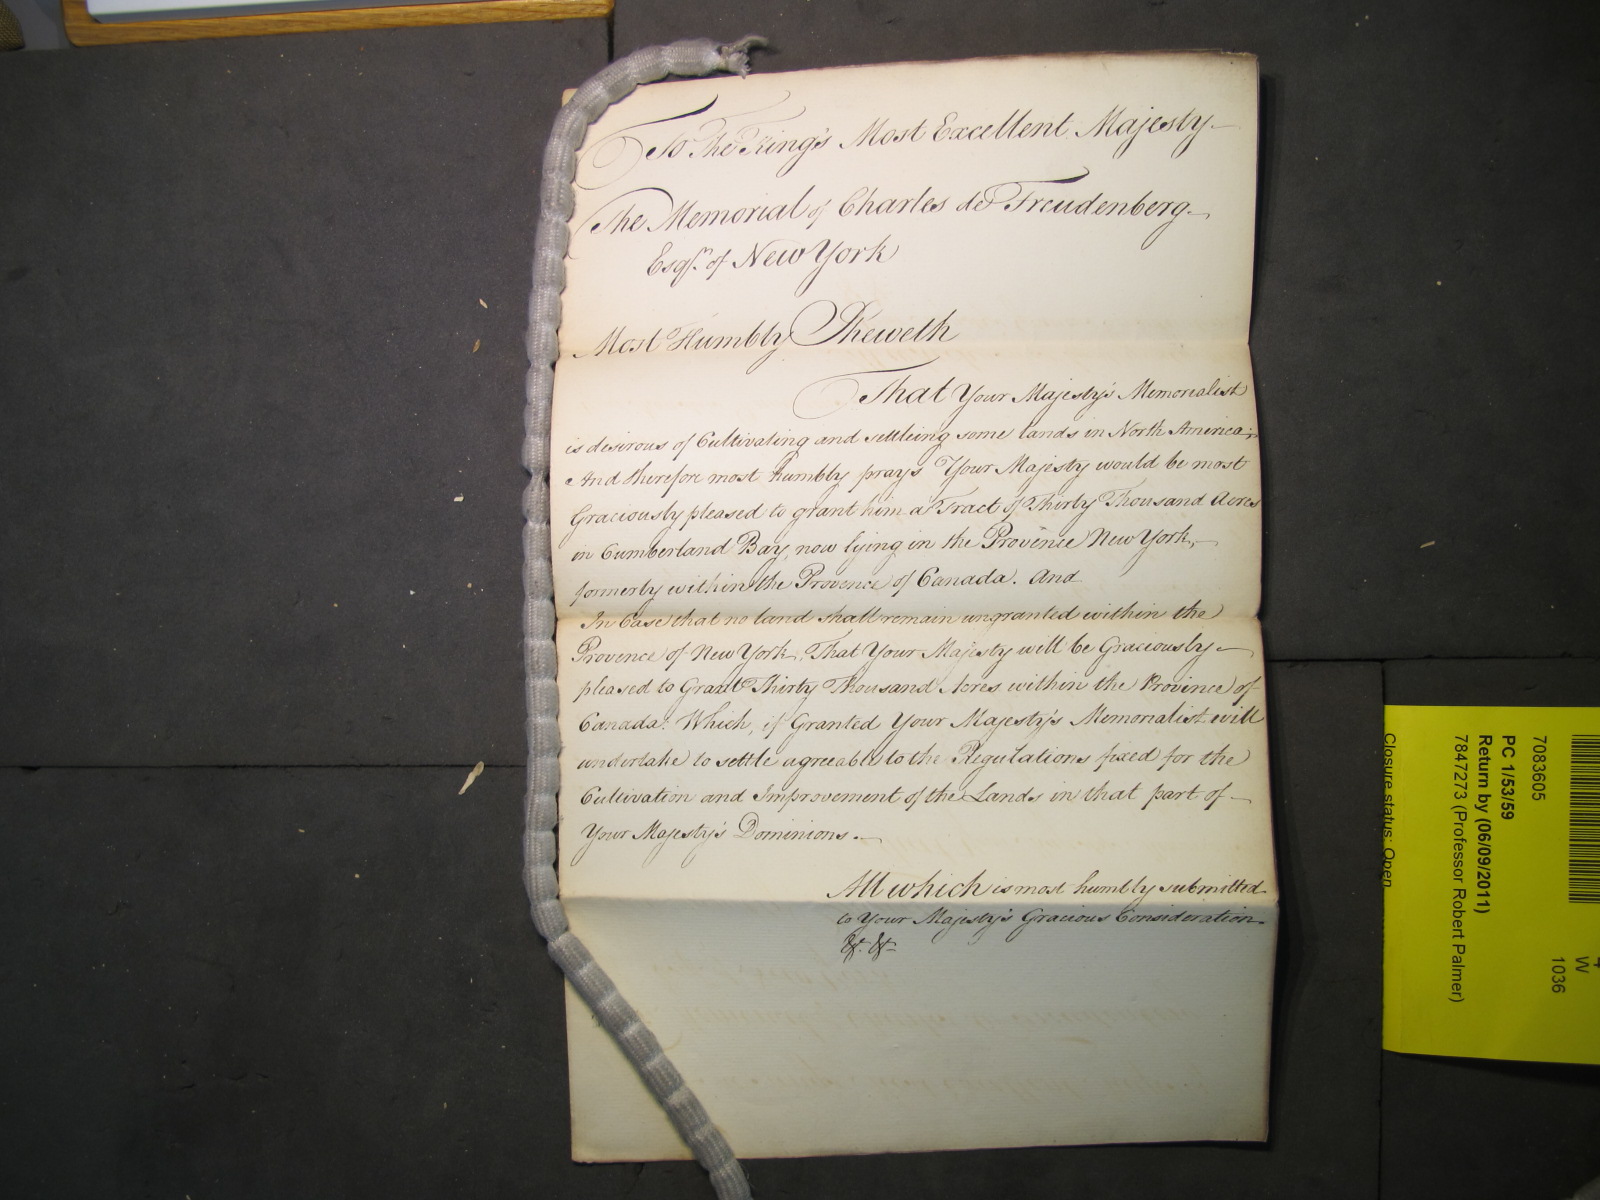 To The King's Most Excellent Majesty
The Memorial of Charles de Freudenberg
Esqr. of New York
Most Humbly Sheweth
That Your Majesty's Memorialist
is desirous of Cultivating and settleing some lands in North America;
And therefore most humbly prays Your Majesty would be most
Graciously pleased to grant him a Tract of Thirty Thousand Acres
in Cumberland Bay, now lying in the Provence New York,
formerly within the Provence of Canada. And
In Case that no land shall remain ungranted within the
Provence of New York, That Your Majesty will be Graciously
pleased to Grant Thirty Thousand Acres within the Province of
Canada: Which, if Granted Your Majesty's Memorialist will
undertake to settle agreeable to the Regulations fixed for the
Cultivation and Improvement of the Lands in that part of
Your Majesty's Dominions.
All which is most humbly submitted
to Your Majesty's Gracious Consideration
&c. &c.
7083605
PC 1/53/59
Return by (06/09/2011)
7847273 (Professor Robert Palmer)
Closure status: Open
W
1036